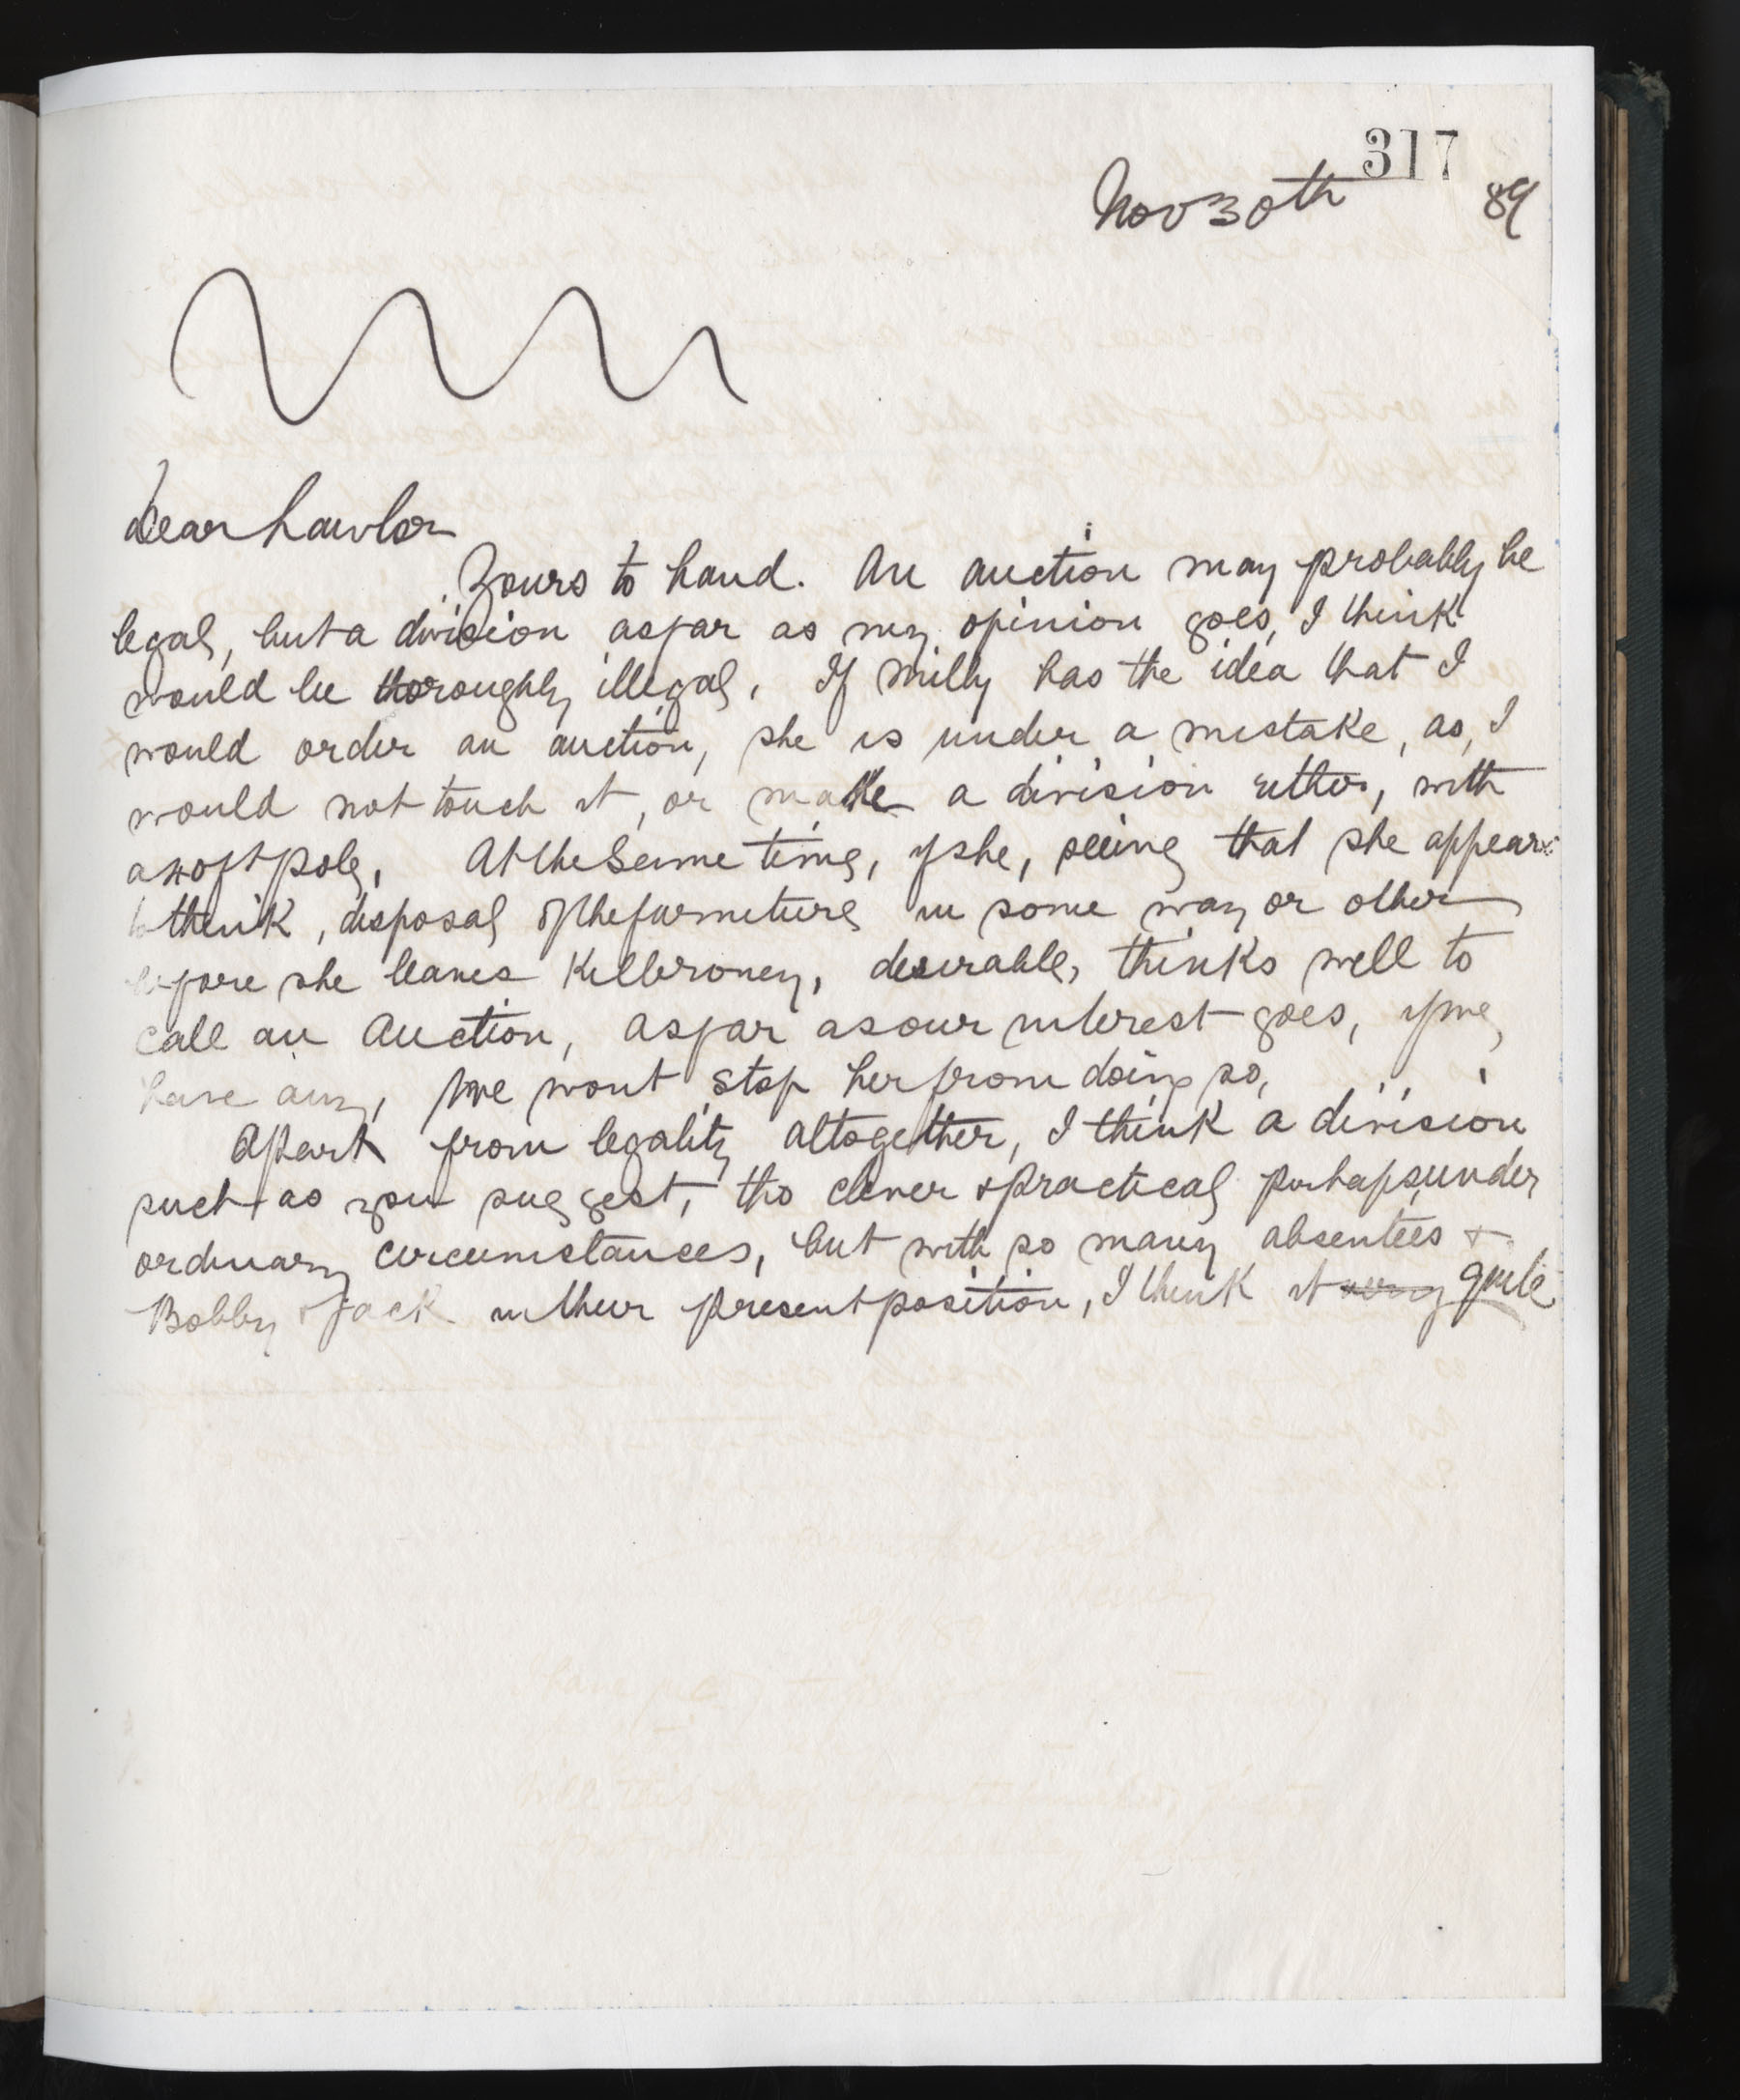 317
Nov 30th 89
Dear Lawlor
Yours to hand. An auction may probably be
legal, but a division as far as my opinion goes, I think
would be thoroughly illegal. If Milly has the idea that I
would order an auction, she is under a mistake, as, I
would not touch it, or make a division either, with
a 40ft pole. At the same time, if she, seeing that she appears
to think, disposal of the furniture in some way or other
before she leaves Kilbroney, desirable, thinks well to
call an Auction, as far as our interest goes, if we
have any, we wont stop her from doing so,
Apart from legality altogether, I think a division
such as you suggest, tho clever & practical perhaps, under
ordinary circumstances, but with so many absentees &
Bobby & Jack in their present position, I think it very quite